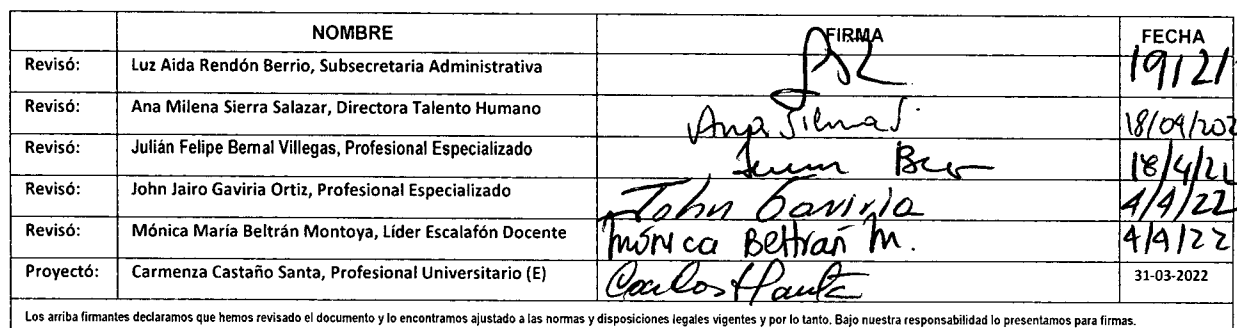 NOMBRE FIRMA FECHA
Revisó: Luz Aida Rendón Berrio, Subsecretaria Administrativa
Revisó: Ana Milena Sierra Salazar, Directora Talento Humano 18/04/202
Revisó: Julián Felipe Bernal Villegas, Profesional Especializado
Revisó: John Jairo Gaviria Ortiz, Profesional Especializado John Gaviria 4/4/22
Revisó: Mónica María Beltrán Montoya, Líder Escalafón Docente Mónica Beltrán M. 4/4/22
Proyectó: Carmenza Castaño Santa, Profesional Universitario (E) 31-03-2022
Los arriba firmantes declaramos que hemos revisado el documento y lo encontramos ajustado a las normas y disposiciones legales vigentes y por lo tanto. Bajo nuestra responsabilidad lo presentamos para firmas.